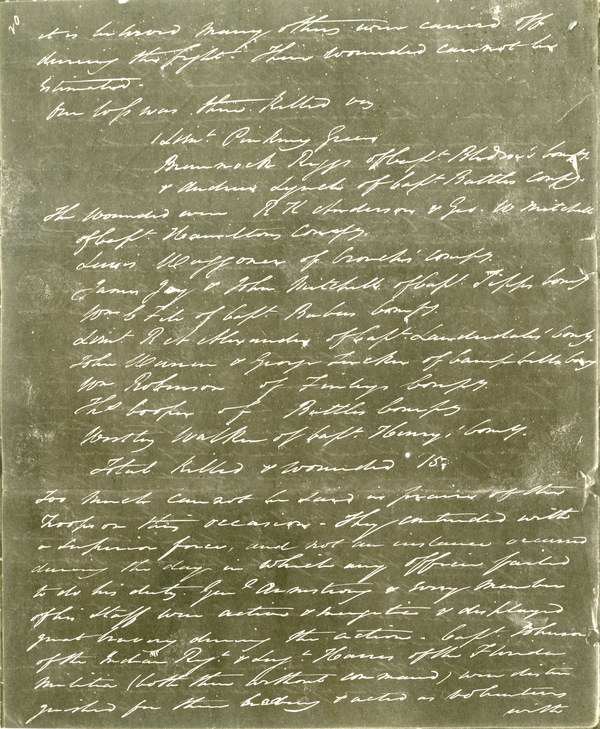 20
it is believed many others were carried off
during the fight. Their wounded cannot be
estimated.
Our loss was three killed viz
1 Lieut. Pinkney Green
Brummock Riggs of Capt. Bledsoe's Compy
& Andrew Lynch of Capt Battles Compy
The wounded were R H Anderson & Geo. W Mitchell
of Capt. Hamiltons Compy
Lewis Waggoner of Crouchs' Compy
James Joy & John Mitchell of Capt. Tipps Compy
Wm C File of Capt Barbers Compy
Lieut R A Alexander of Capt. Lauderdales' Compy
John Warren & George Tucker of Campbells Compy
Wm Robinson of Finleys Compy
Thos Cooper of Battles Compy
Walker of Capt. Henrys' Compy.
Total killed & wounded 15.
Too much cannot be said in praise of the
Troops on this occasion. They contended with
a superior force, and not an instance occurred
during the day in which any officer failed
to do his duty. Genl Armstrong & every member
of his Staff were active & energetic & displayed
great bravery during the action. Capt. Johnson
of the Indian Regt & Lieut Harris of the Florida
Militia (both then without command) were distin
guished for their bravery & acted as volunteers
with